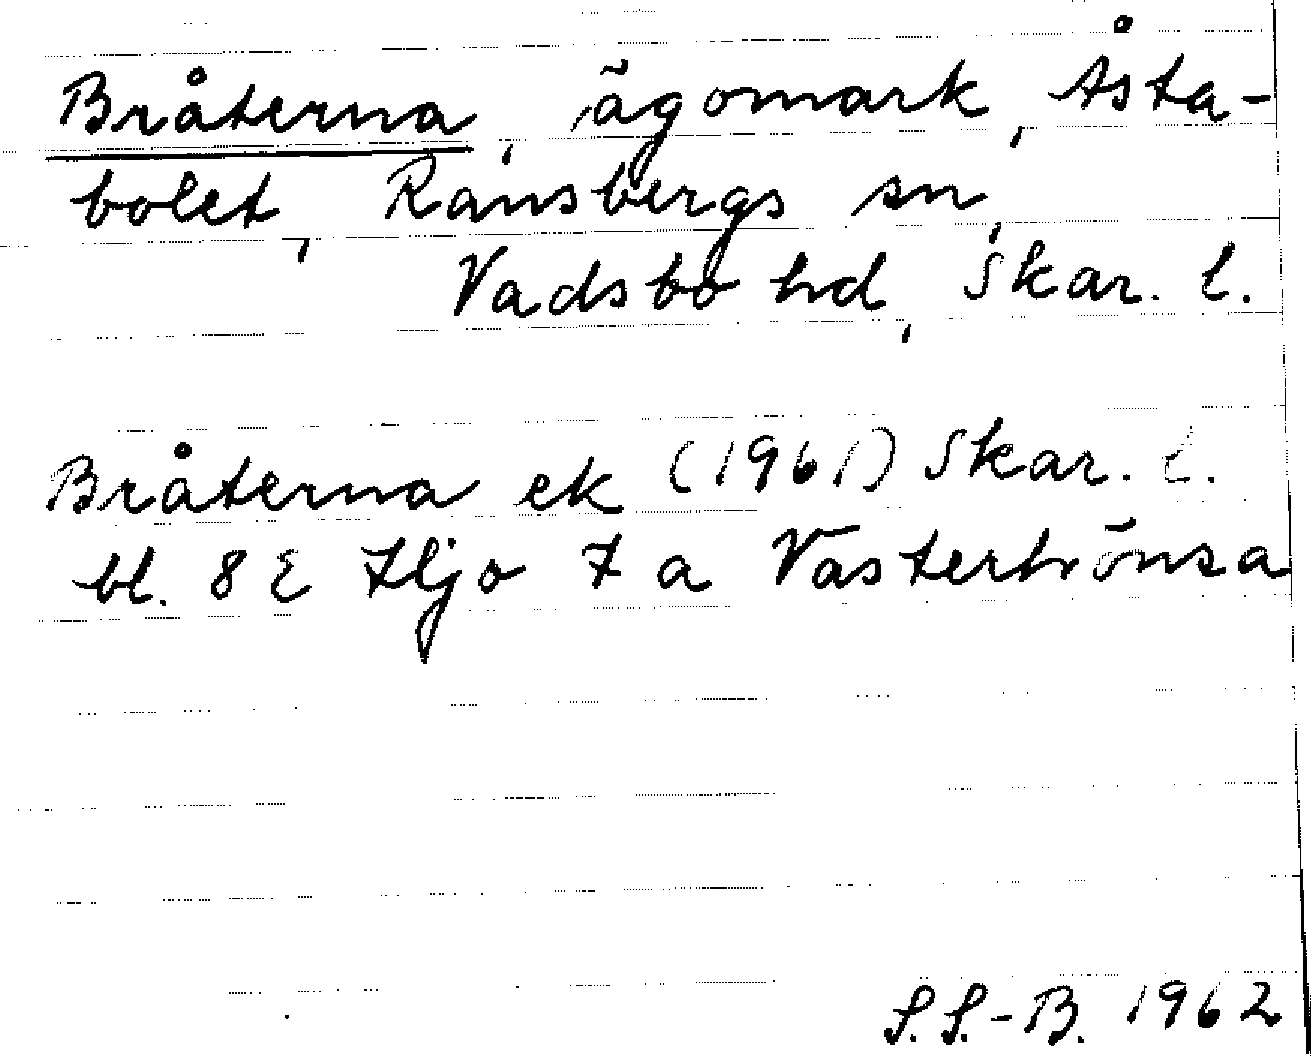 Bråterna, ägomark, Åsta-
bolet, Ransbergs sn,
Vadsbo hd, Skar. l.
Bråterna ek (1961) Skar. l.
bl. 8 E Hjo 7 a Västerhönsa
S.S.-B. 1962